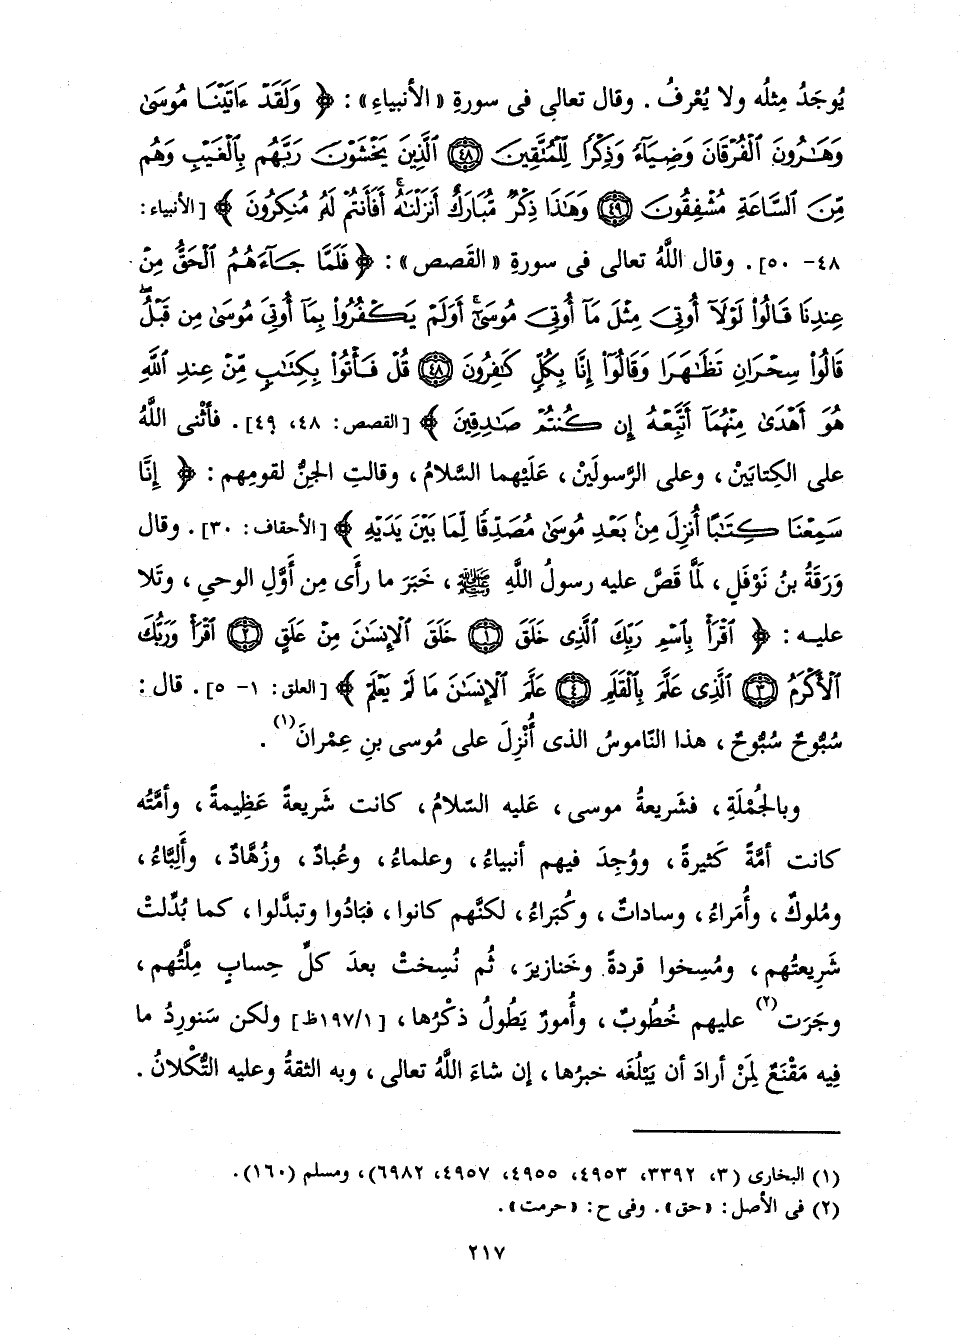 يُوجَدُ مِثلُه ولا يُعْرفُ. وقال تعالى فى سورةِ «الأنبياءِ»: ﴿ وَلَقَدْ ءَاتَيْنَا مُوسَىٰ
وَهَـٰرُونَ ٱلْفُرْقَانَ وَضِيَآءً وَذِكْرًا لِّلْمُتَّقِينَ ﴿٤٨﴾ ٱلَّذِينَ يَخْشَوْنَ رَبَّهُم بِٱلْغَيْبِ وَهُم
مِّنَ ٱلسَّاعَةِ مُشْفِقُونَ ﴿٤٩﴾ وَهَـٰذَا ذِكْرٌ مُّبَارَكٌ أَنزَلْنَـٰهُ ۚ أَفَأَنتُمْ لَهُۥ مُنكِرُونَ ﴾ [الأنبياء:
٤٨- ٥٠]. وقال اللَّهُ تعالى فى سورةِ «القَصص»: ﴿ فَلَمَّا جَآءَهُمُ ٱلْحَقُّ مِنْ
عِندِنَا قَالُوا۟ لَوْلَآ أُوتِىَ مِثْلَ مَآ أُوتِىَ مُوسَىٰٓ ۚ أَوَلَمْ يَكْفُرُوا۟ بِمَآ أُوتِىَ مُوسَىٰ مِن قَبْلُ ۖ
قَالُوا۟ سِحْرَانِ تَظَـٰهَرَا وَقَالُوٓا۟ إِنَّا بِكُلٍّ كَـٰفِرُونَ ﴿٤٨﴾ قُلْ فَأْتُوا۟ بِكِتَـٰبٍ مِّنْ عِندِ ٱللَّهِ
هُوَ أَهْدَىٰ مِنْهُمَآ أَتَّبِعْهُ إِن كُنتُمْ صَـٰدِقِينَ ﴾ [القصص: ٤٨، ٤٩]. فأثْنى اللَّهُ
على الكِتابَيْنْ، وعلى الرَّسولَيْنْ، عَلَيْهما السَّلامُ، وقالتِ الجنُّ لقومِهم: ﴿ إِنَّا
سَمِعْنَا كِتَـٰبًا أُنزِلَ مِنۢ بَعْدِ مُوسَىٰ مُصَدِّقًا لِّمَا بَيْنَ يَدَيْهِ ﴾ [الأحقاف: ٣٠]. وقال
وَرَقَةُ بنُ نَوْفَلٍ، لَمَّا قَصَّ عليه رسولُ اللَّهِ ﷺ، خَبَرَ ما رأى مِن أوَّلِ الوحي، وتَلا
عليه: ﴿ ٱقْرَأْ بِٱسْمِ رَبِّكَ ٱلَّذِى خَلَقَ ﴿١﴾ خَلَقَ ٱلْإِنسَـٰنَ مِنْ عَلَقٍ ﴿٢﴾ ٱقْرَأْ وَرَبُّكَ
ٱلْأَكْرَمُ ﴿٣﴾ ٱلَّذِى عَلَّمَ بِٱلْقَلَمِ ﴿٤﴾ عَلَّمَ ٱلْإِنسَـٰنَ مَا لَمْ يَعْلَمْ ﴾ [العلق: ١- ٥]. قال:
سُبُّوحٌ سُبُّوحٌ، هذا النّاموسُ الذى أُنْزِلَ على مُوسى بنِ عِمْرانَ(١).
وبالجُمْلَةِ، فشَريعةُ موسى، عَليه السّلامُ، كانت شَريعةً عَظِيمةً، وأمَّتُه
كانت أمَّةً كَثيرةً، ووُجِدَ فيهم أنبياءُ، وعلماءُ، وعُبادٌ، وزُهَّادٌ، وأَلِبَّاءُ،
ومُلوكٌ، وأُمَراءُ، وساداتٌ، وكُبَراءُ، لكنَّهم كانوا، فبَادُوا وتبدَّلوا، كما بُدِّلتْ
شَرِيعتُهم، ومُسِخوا قردةً وخَنازيرَ، ثُم نُسِختْ بعدَ كلِّ حِسابٍ مِلَّتُهم،
وجَرَت(٢) عليهم خُطُوبٌ، وأُمورٌ يَطُولُ ذكْرُها، [١٩٧/١ظ] ولكن سَنورِدُ ما
فِيه مَقْنَعٌ لِمَنْ أرادَ أن يَبْلُغَه خبرُها، إن شاءَ اللَّهُ تعالى، وبه الثقةُ وعليه التُّكْلانُ.
(١) البخارى (٣، ٣٣٩٢، ٤٩٥٣، ٤٩٥٥، ٤٩٥٧، ٦٩٨٢)، ومسلم (١٦٠).
(٢) فى الأصل: «حق». وفى ح: «حرمت».
٢١٧